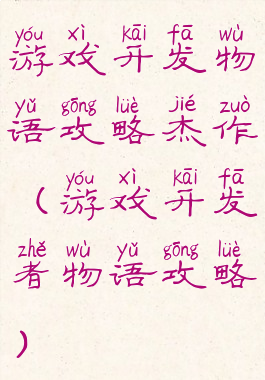 yóu xì kāi fā wù
游戏开发物
yǔ gōng lüè jié zuò
语攻略杰作
yóu xì kāi fā
(游戏开发
zhě wù yǔ gōng lüè
者物语攻略
)